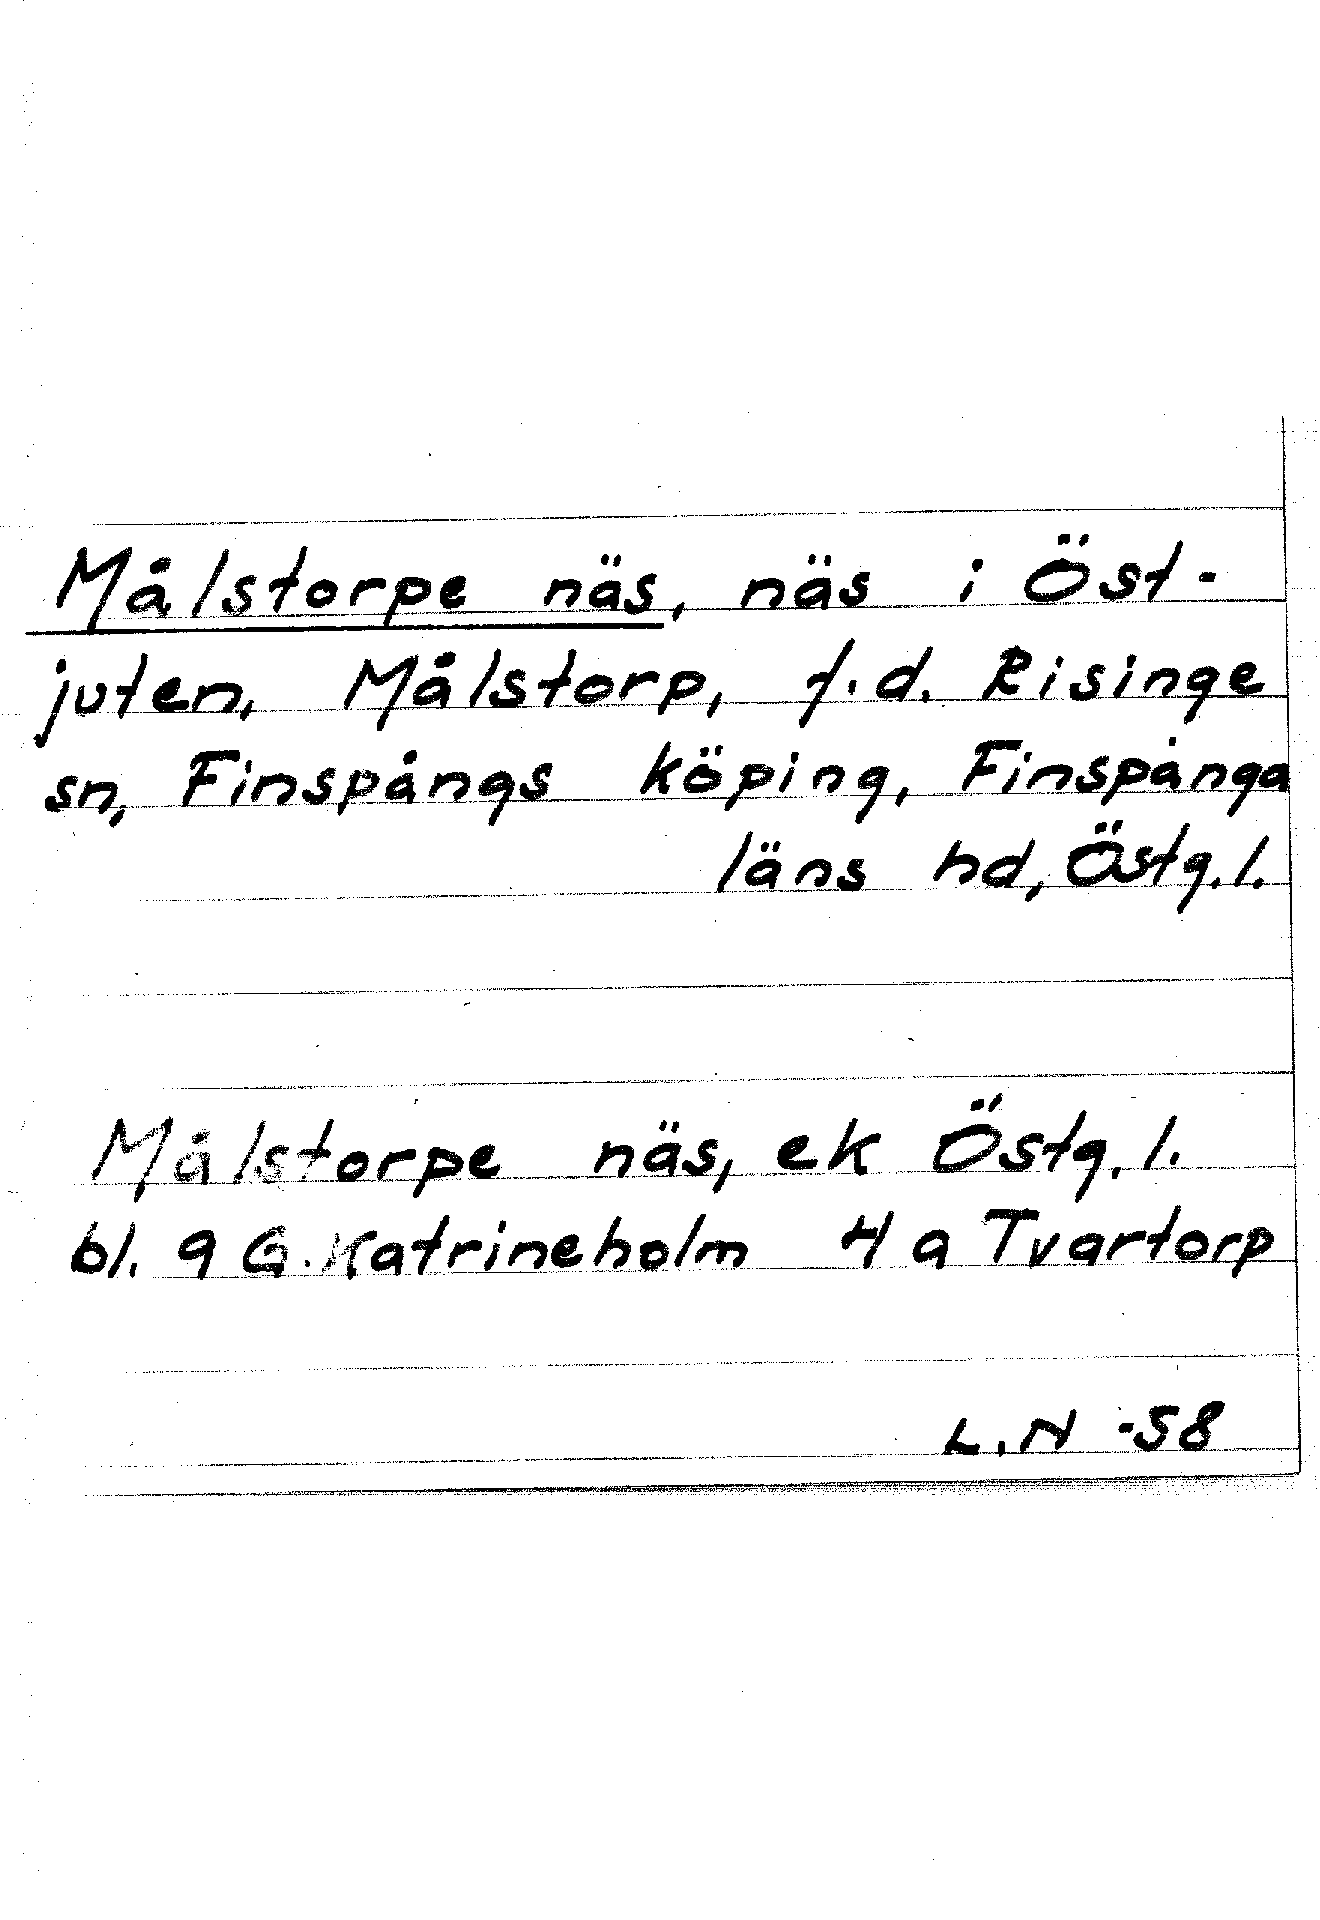 Målstorpe näs, näs i Öst-
juten, Målstorp, f.d. Risinge
sn, Finspångs köping, Finspånga
läns hd, Östg.l.
Målstorpe näs, ek Östg.l.
bl. 9 G. Katrineholm 4 a Tvartorp
L.N -58